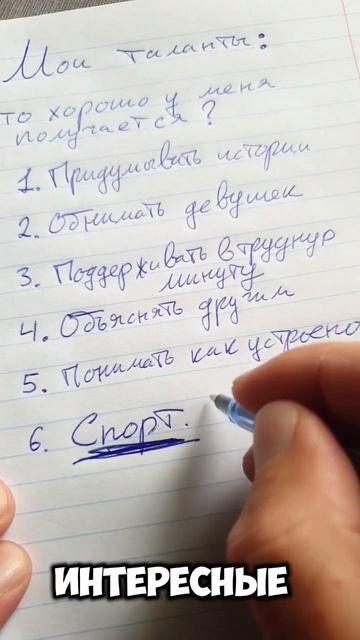 Мои таланты:
то хорошо у меня
получается?
1. Придумывать истории
2. Обнимать девушек
3. Поддерживать в трудную
минуту
4. Объяснять другим
5. Понимать как устроено
6. Спорт.
ИНТЕРЕСНЫЕ